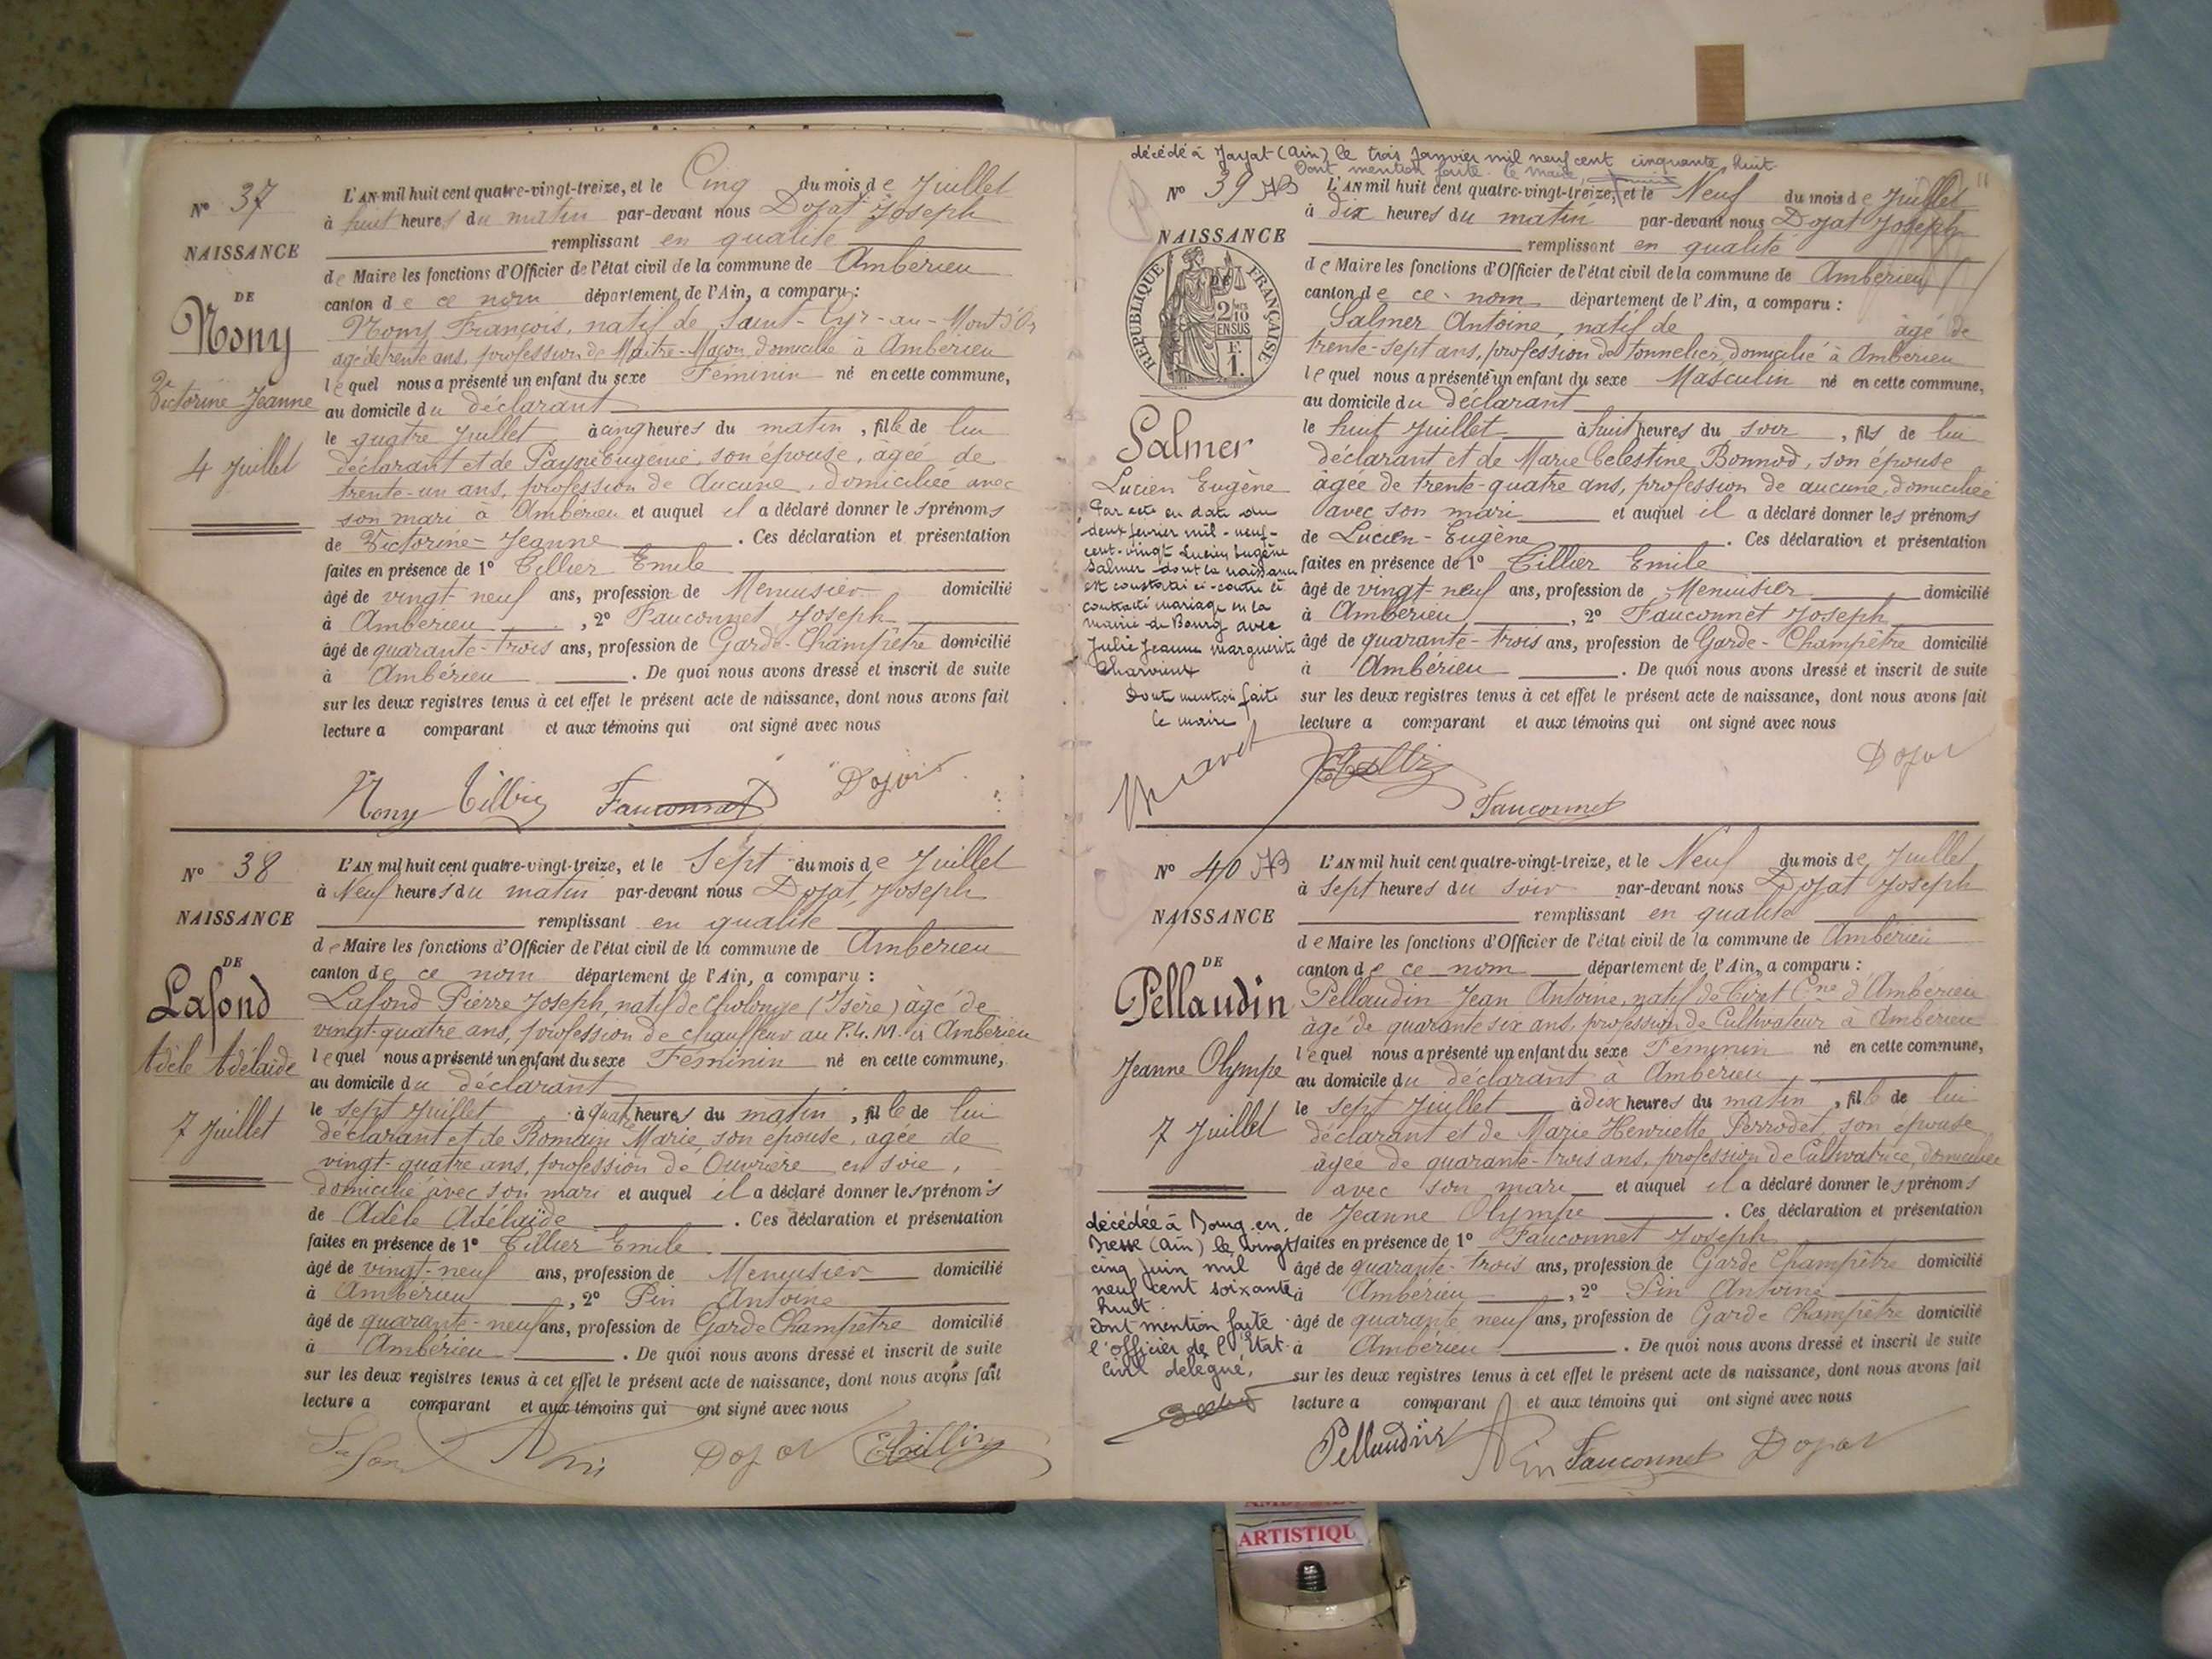 N° 37
NAISSANCE
DE
Nony
Victorine Jeanne
4 Juillet
L'AN mil huit cent quatre-vingt-treize, et le Cinq du mois de Juillet
à huit heures du matin par-devant nous Dojat Joseph
remplissant en qualité
de Maire les fonctions d'Officier de l'état civil de la commune de Ambérieu
canton de ce nom département de l'Ain, a comparu :
Nony François, natif de Saint-Cyr-au-Mont d'Or
âgé de trente ans, profession de Maître-Maçon, domicilié à Ambérieu
lequel nous a présenté un enfant du sexe Féminin né en cette commune,
au domicile du déclarant
le quatre Juillet à cinq heures du matin, fille de lui
déclarant et de Payné Eugénie, son épouse, âgée de
trente-un ans, profession de Aucune, domiciliée avec
son mari à Ambérieu et auquel il a déclaré donner les prénoms
de Victorine-Jeanne. Ces déclaration et présentation
faites en présence de 1° Tillier Emile
âgé de vingt-neuf ans, profession de Menuisier domicilié
à Ambérieu, 2° Fauconnet Joseph
âgé de quarante-trois ans, profession de Garde-Champêtre domicilié
à Ambérieu. De quoi nous avons dressé et inscrit de suite
sur les deux registres tenus à cet effet le présent acte de naissance, dont nous avons fait
lecture a comparant et aux témoins qui ont signé avec nous
Nony Tillier Fauconnet Dojat
N° 38
NAISSANCE
DE
Lafond
Adèle Adélaïde
7 Juillet
L'AN mil huit cent quatre-vingt-treize, et le Sept du mois de Juillet
à Neuf heures du matin par-devant nous Dojat Joseph
remplissant en qualité
de Maire les fonctions d'Officier de l'état civil de la commune de Ambérieu
canton de ce nom département de l'Ain, a comparu :
Lafond Pierre Joseph, natif de Cholonge (Isère) âgé de
vingt-quatre ans, profession de chauffeur au P.L.M. à Ambérieu
lequel nous a présenté un enfant du sexe Féminin né en cette commune,
au domicile du déclarant
le sept Juillet à quatre heures du matin, fille de lui
déclarant et de Romain Marie, son épouse, âgée de
vingt-quatre ans, profession de Ouvrière en soie,
domicilié avec son mari et auquel il a déclaré donner les prénoms
de Adèle Adélaïde. Ces déclaration et présentation
faites en présence de 1° Tillier Emile
âgé de vingt-neuf ans, profession de Menuisier domicilié
à Ambérieu, 2° Pin Antoine
âgé de quarante-neuf ans, profession de Garde Champêtre domicilié
à Ambérieu. De quoi nous avons dressé et inscrit de suite
sur les deux registres tenus à cet effet le présent acte de naissance, dont nous avons fait
lecture a comparant et aux témoins qui ont signé avec nous
Lafond Pin Dojat Tillier
décédé à Jayat (Ain) le trois Janvier mil neuf cent cinquante huit
Dont mention faite. Le maire,
N° 39
NAISSANCE
DE
RÉPUBLIQUE FRANÇAISE
2/10 EN SUS
F. 1.
Salmer
Lucien Eugène
Par acte en date du
deux février mil-neuf-
cent-vingt Lucien Eugène
Salmer dont la naissance
est constatée ci-contre a
contracté mariage en la
mairie de Bourg avec
Julie Jeanne Marguerite
Charvieux
Dont mention faite
le maire
L'AN mil huit cent quatre-vingt-treize, et le Neuf du mois de Juillet
à dix heures du matin par-devant nous Dojat Joseph
remplissant en qualité
de Maire les fonctions d'Officier de l'état civil de la commune de Ambérieu
canton de ce nom département de l'Ain, a comparu :
Salmer Antoine, natif de âgé de
trente-sept ans, profession de tonnelier, domicilié à Ambérieu
lequel nous a présenté un enfant du sexe Masculin né en cette commune,
au domicile du déclarant
le huit Juillet à huit heures du soir, fils de lui
déclarant et de Marie Célestine Bonnod, son épouse
âgée de trente-quatre ans, profession de aucune, domiciliée
avec son mari et auquel il a déclaré donner les prénoms
de Lucien-Eugène. Ces déclaration et présentation
faites en présence de 1° Tillier Emile
âgé de vingt-neuf ans, profession de Menuisier domicilié
à Ambérieu, 2° Fauconnet Joseph
âgé de quarante-trois ans, profession de Garde-Champêtre domicilié
à Ambérieu. De quoi nous avons dressé et inscrit de suite
sur les deux registres tenus à cet effet le présent acte de naissance, dont nous avons fait
lecture a comparant et aux témoins qui ont signé avec nous
Tillier Fauconnet Dojat
N° 40
NAISSANCE
DE
Pellaudin
Jeanne Olympe
7 Juillet
décédée à Bourg-en-
Bresse (Ain) le vingt
cinq juin mil
neuf cent soixante
huit.
Dont mention faite
l'officier de l'Etat
Civil délégué,
L'AN mil huit cent quatre-vingt-treize, et le Neuf du mois de Juillet
à sept heures du soir par-devant nous Dojat Joseph
remplissant en qualité
de Maire les fonctions d'Officier de l'état civil de la commune de Ambérieu
canton de ce nom département de l'Ain, a comparu :
Pellaudin Jean Antoine, natif de Tiret Cne d'Ambérieu
âgé de quarante six ans, profession de Cultivateur à Ambérieu
lequel nous a présenté un enfant du sexe Féminin né en cette commune,
au domicile du déclarant à Ambérieu
le sept Juillet à dix heures du matin, fille de lui
déclarant et de Marie Henriette Perrodet, son épouse
âgée de quarante-trois ans, profession de Cultivatrice, domiciliée
avec son mari et auquel il a déclaré donner les prénoms
de Jeanne Olympe. Ces déclaration et présentation
faites en présence de 1° Fauconnet Joseph
âgé de quarante-trois ans, profession de Garde Champêtre domicilié
à Ambérieu, 2° Pin Antoine
âgé de quarante neuf ans, profession de Garde Champêtre domicilié
à Ambérieu. De quoi nous avons dressé et inscrit de suite
sur les deux registres tenus à cet effet le présent acte de naissance, dont nous avons fait
lecture a comparant et aux témoins qui ont signé avec nous
Pellaudin Pin Fauconnet Dojat
ARTISTIQU